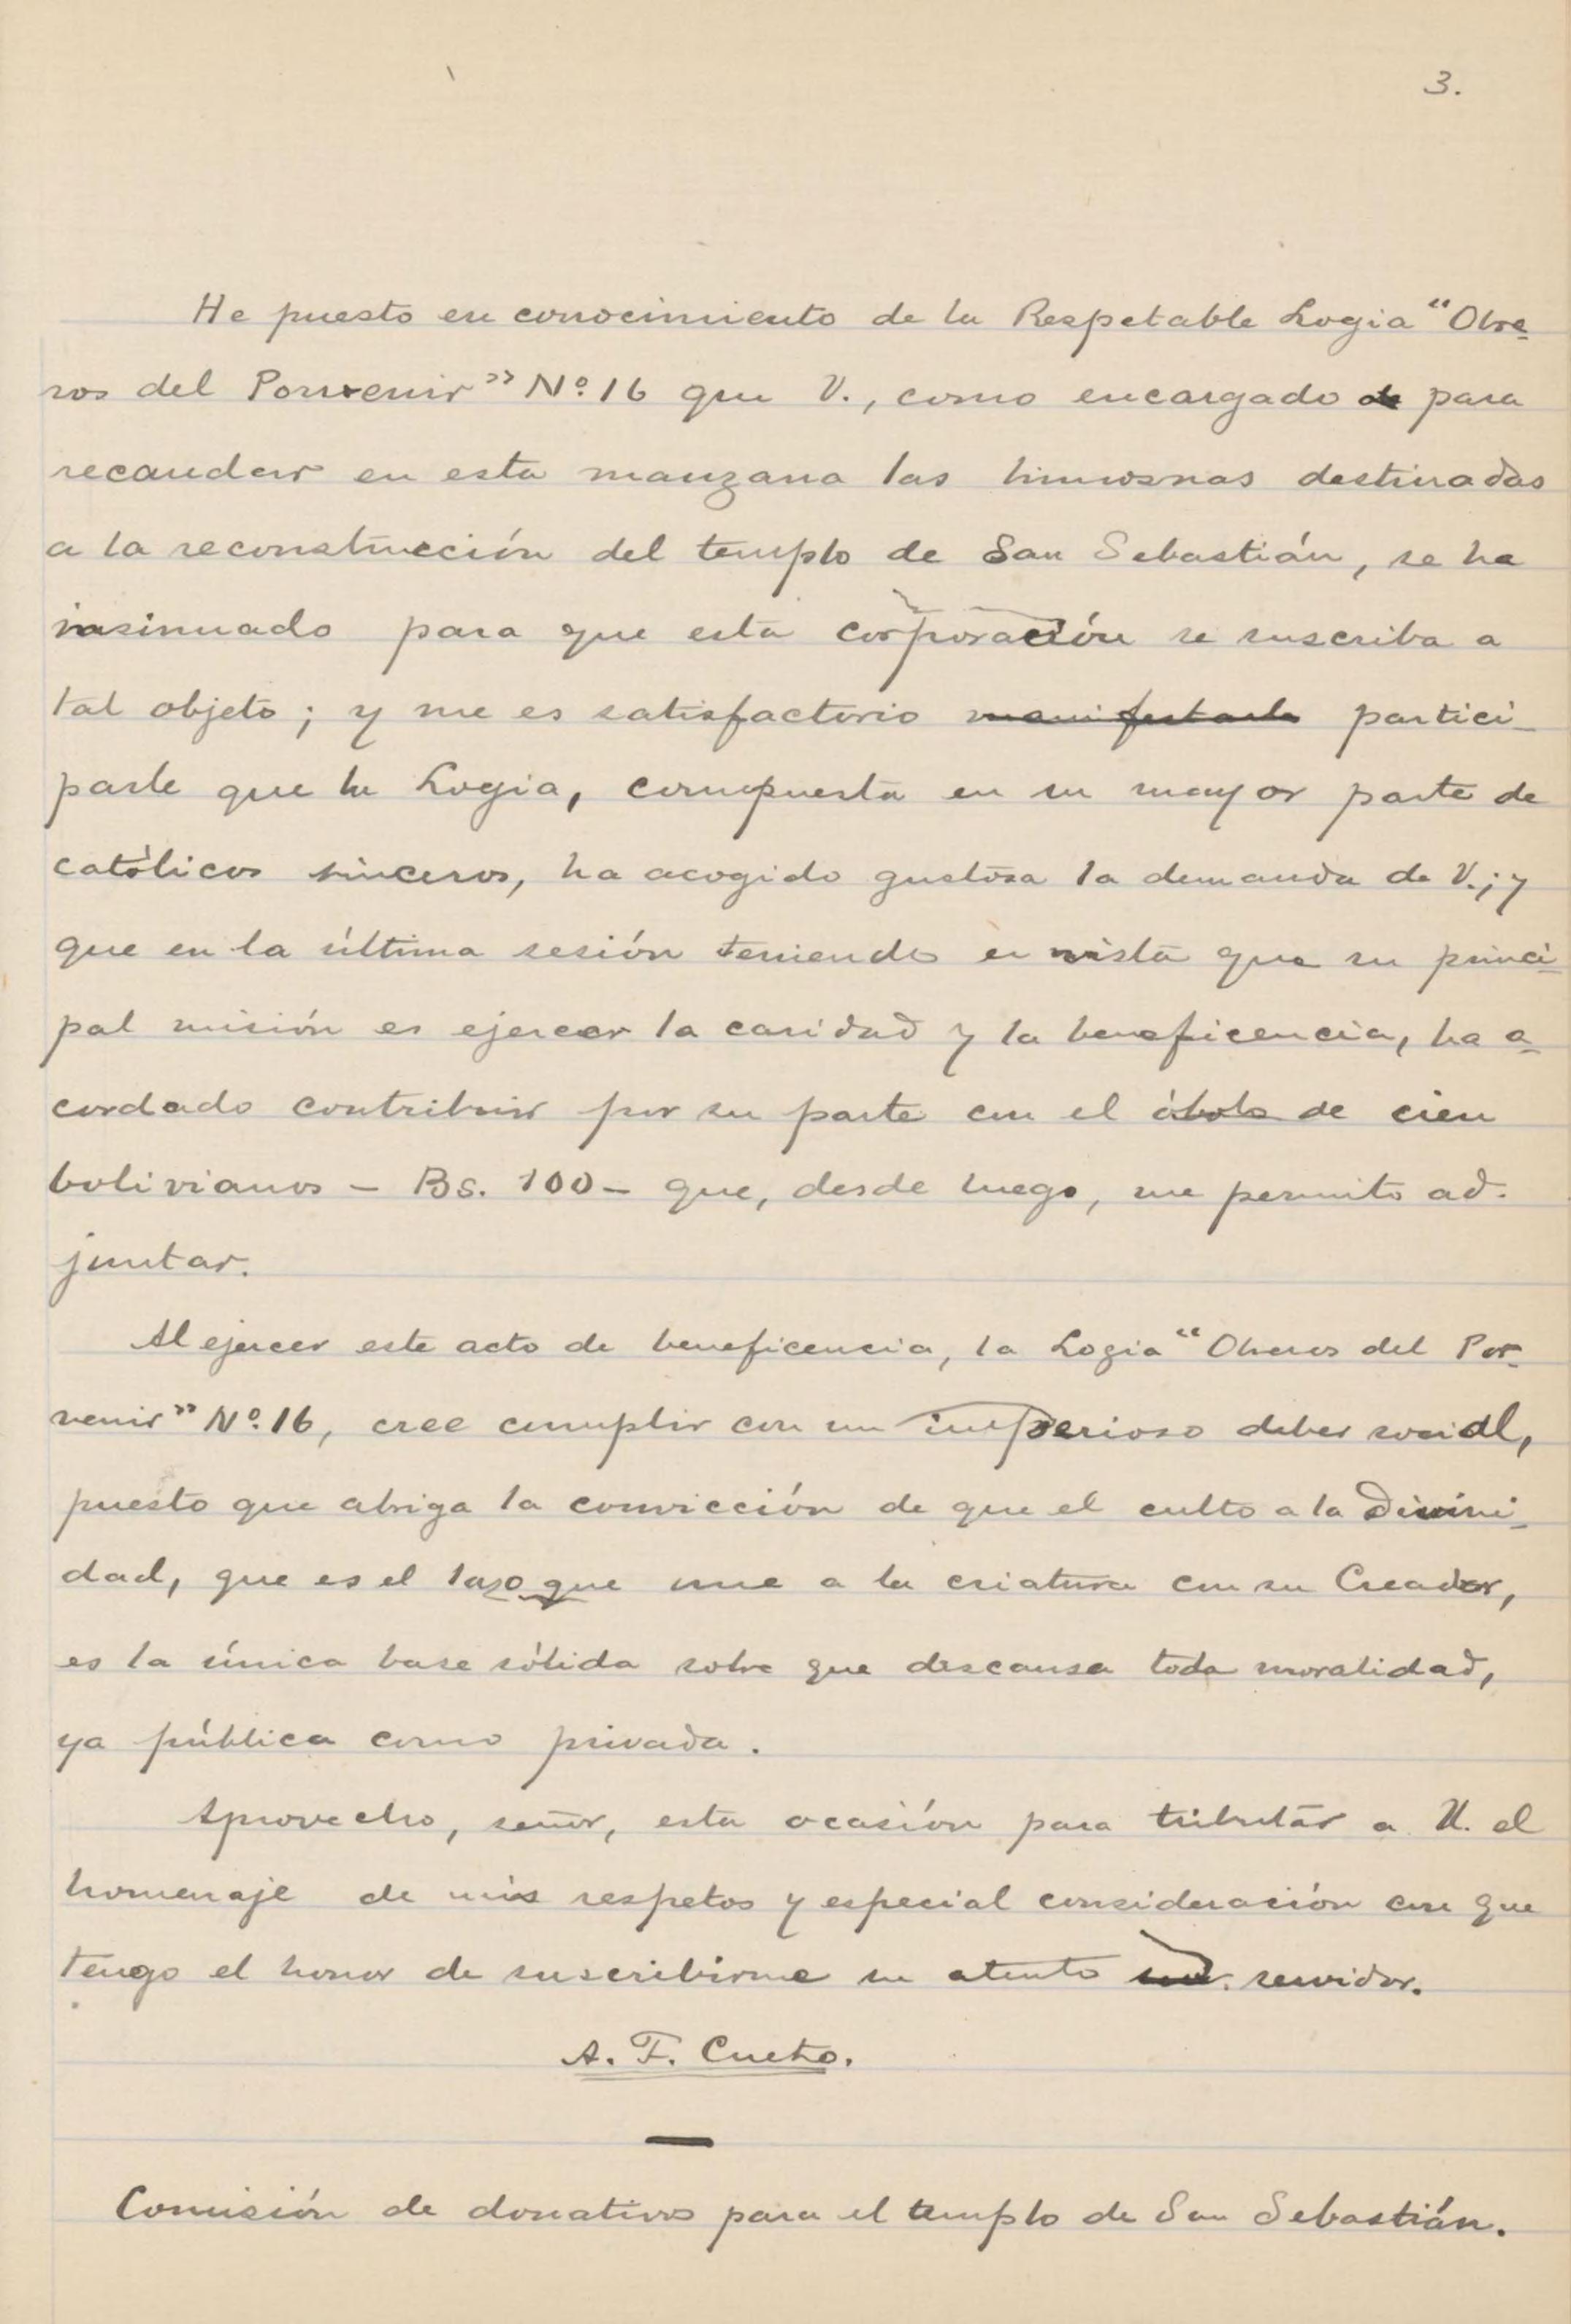 3.
He puesto en conocimiento de la Respetable Logia "Obre-
ros del Porvenir" Nº. 16 que V., como encargado para
recaudar en esta manzana las limosnas destinadas
a la reconstrucción del templo de San Sebastián, se ha
insinuado para que esta corporación se suscriba a
tal objeto; y me es satisfactorio manifestarle partici-
parle que la Logia, compuesta en su mayor parte de
católicos sinceros, ha acogido gustosa la demanda de V.; y
que en la última sesión teniendo en vista que su princi-
pal misión es ejercer la caridad y la beneficencia, ha a-
cordado contribuir por su parte con el óbolo de cien
bolivianos - Bs. 100 - que, desde luego, me permito ad-
juntar.
Al ejercer este acto de beneficencia, la Logia "Obreros del Por-
venir" Nº. 16, cree cumplir con un imperioso deber social,
puesto que abriga la convicción de que el culto a la Divini-
dad, que es el lazo que une a la criatura con su Creador,
es la única base sólida sobre que descansa toda moralidad,
ya pública como privada.
Aprovecho, señor, esta ocasión para tributar a U. el
homenaje de mis respetos y especial consideración con que
tengo el honor de suscribirme su atento servidor.
A. F. Cueto.
Comisión de donativos para el templo de San Sebastián.